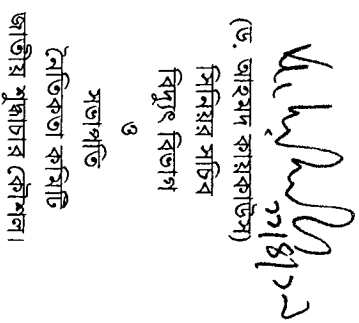 ২২।৪।১৯
(ড. আহমদ কায়কাউস)
সিনিয়র সচিব
বিদ্যুৎ বিভাগ
ও
সভাপতি
নৈতিকতা কমিটি
জাতীয় শুদ্ধাচার কৌশল।